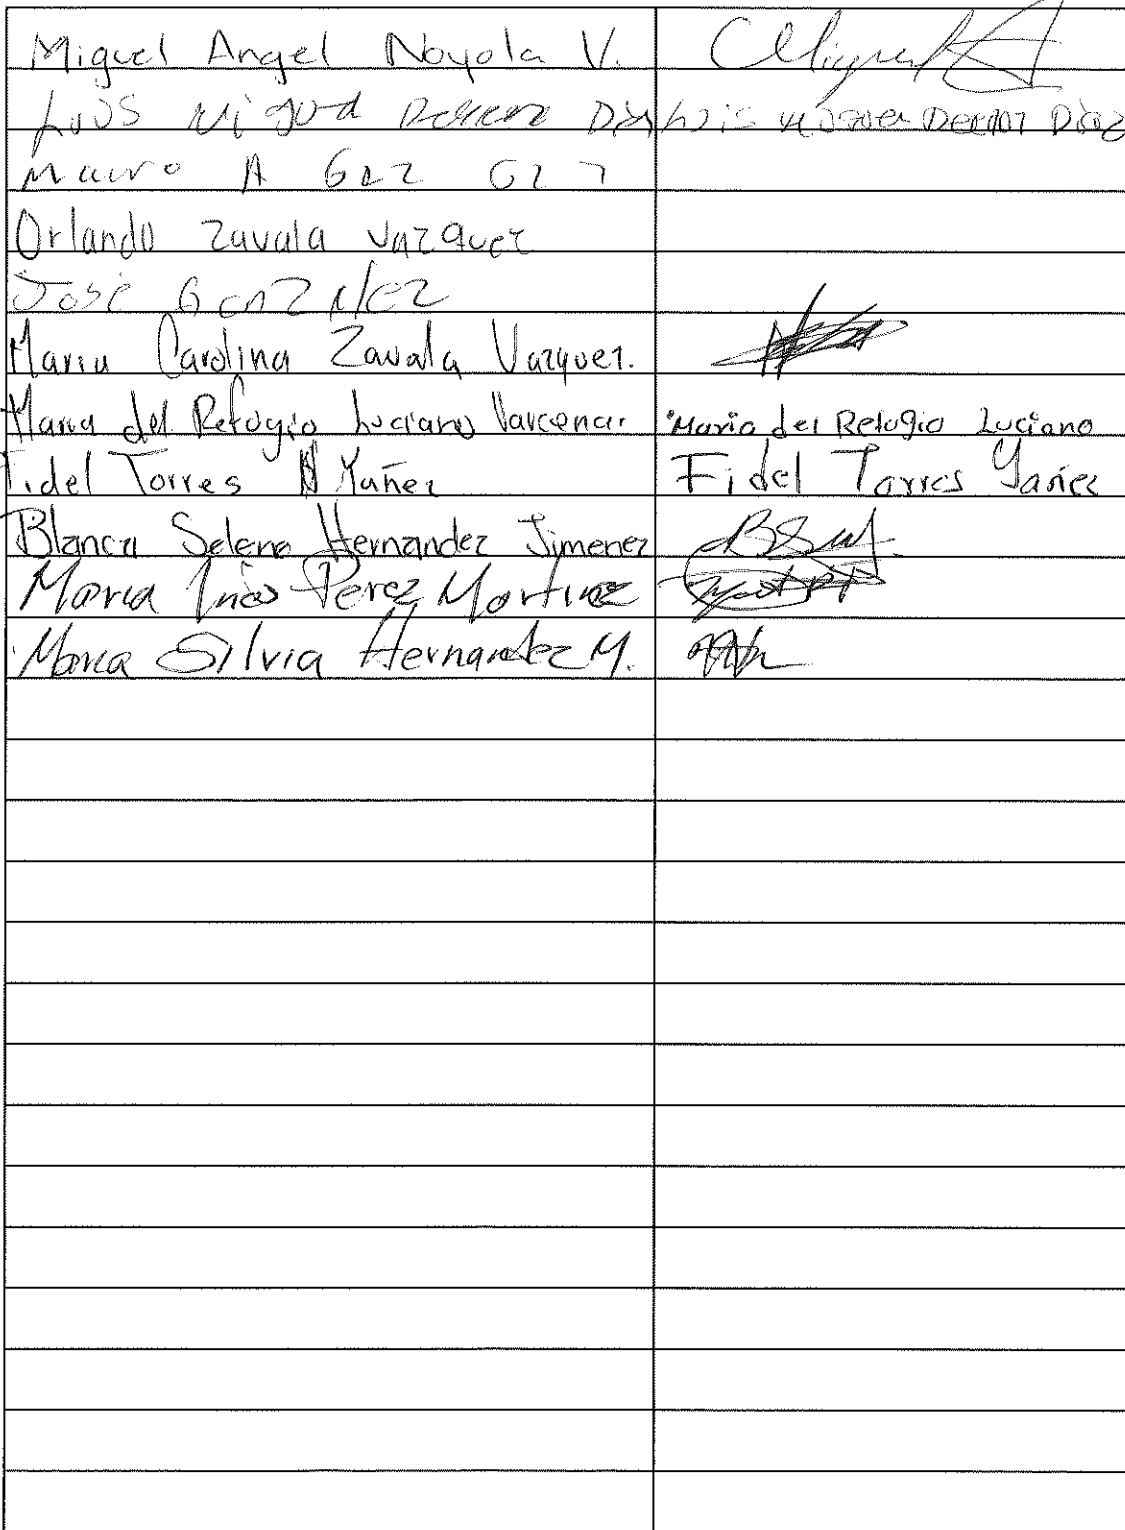 Miguel Angel Noyola V. Miguel
Luis Miguel Diaz
Mauro A
Orlando Zavala Vazquez
José Gonzalez
Maria Carolina Zavala Vazquez.
Maria del Refugio Luciano Maria del Refugio Luciano
Fidel Torres Yañez Fidel Torres Yañez
Blanca Selene Hernandez Jimenez
Maria Ines Perez Martinez
Maria Silvia Hernandez M.